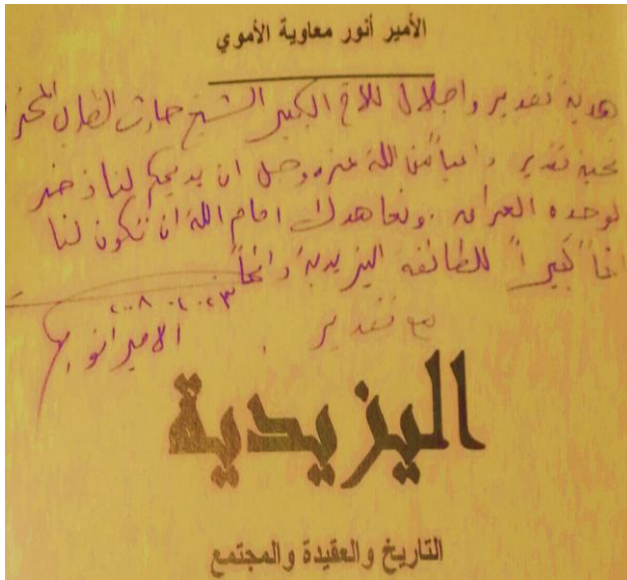 الأمير أنور معاوية الأموي
هدية تقدير واجلال للاخ الكبير الشيخ حارث الضاري المحترم
تحية تقدير داعياً من الله عز وجل ان يديمكم لنا ذخر
لوحدة العراق ونعاهدك امام الله ان تكون لنا
اخاً كبيراً للطائفة اليزيدية دائماً
مع تقدير
الامير انور
اليزيدية
التاريخ والعقيدة والمجتمع